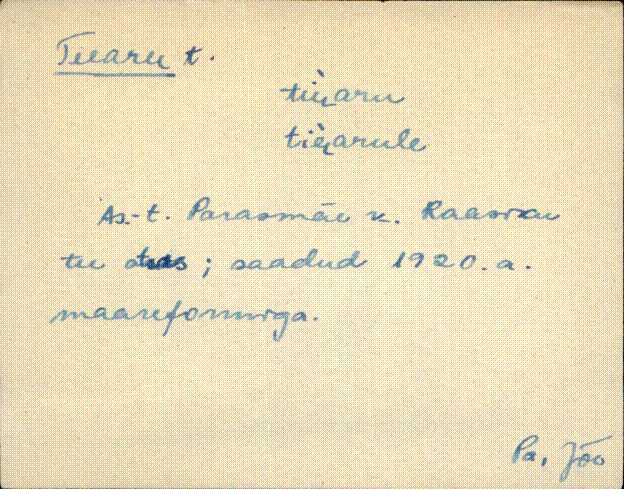 Tiearu t.
tiè̯aru
tiè̯arule
As.-t. Parasmäe k. Raasiku
tee otsas; saadud 1920. a.
maareformiga.
Pa, Jõe